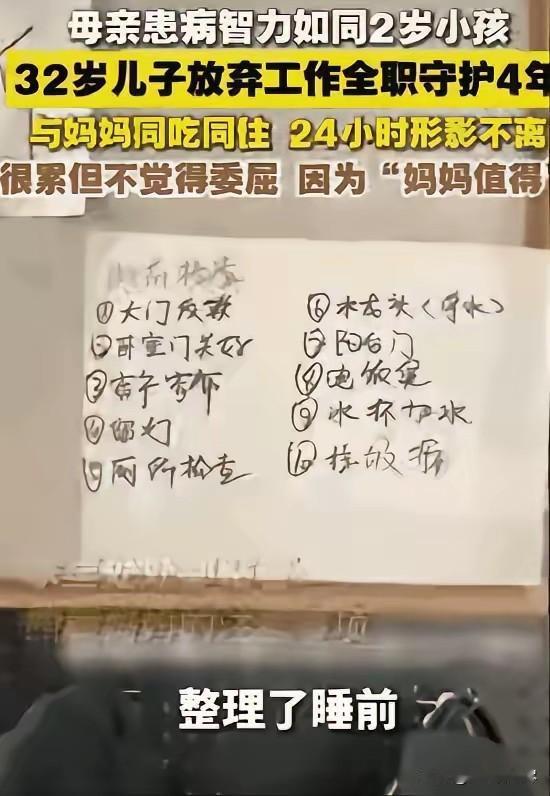 母亲患病智力如同2岁小孩
32岁儿子放弃工作全职守护4年
与妈妈同吃同住 24小时形影不离
很累但不觉得委屈 因为“妈妈值得
①大门反锁
②卧室门关好
③
④
⑤厕所检查
⑥水龙头(
⑦阳台门
⑧电饭煲
⑨水杯加水
⑩
整理了睡前